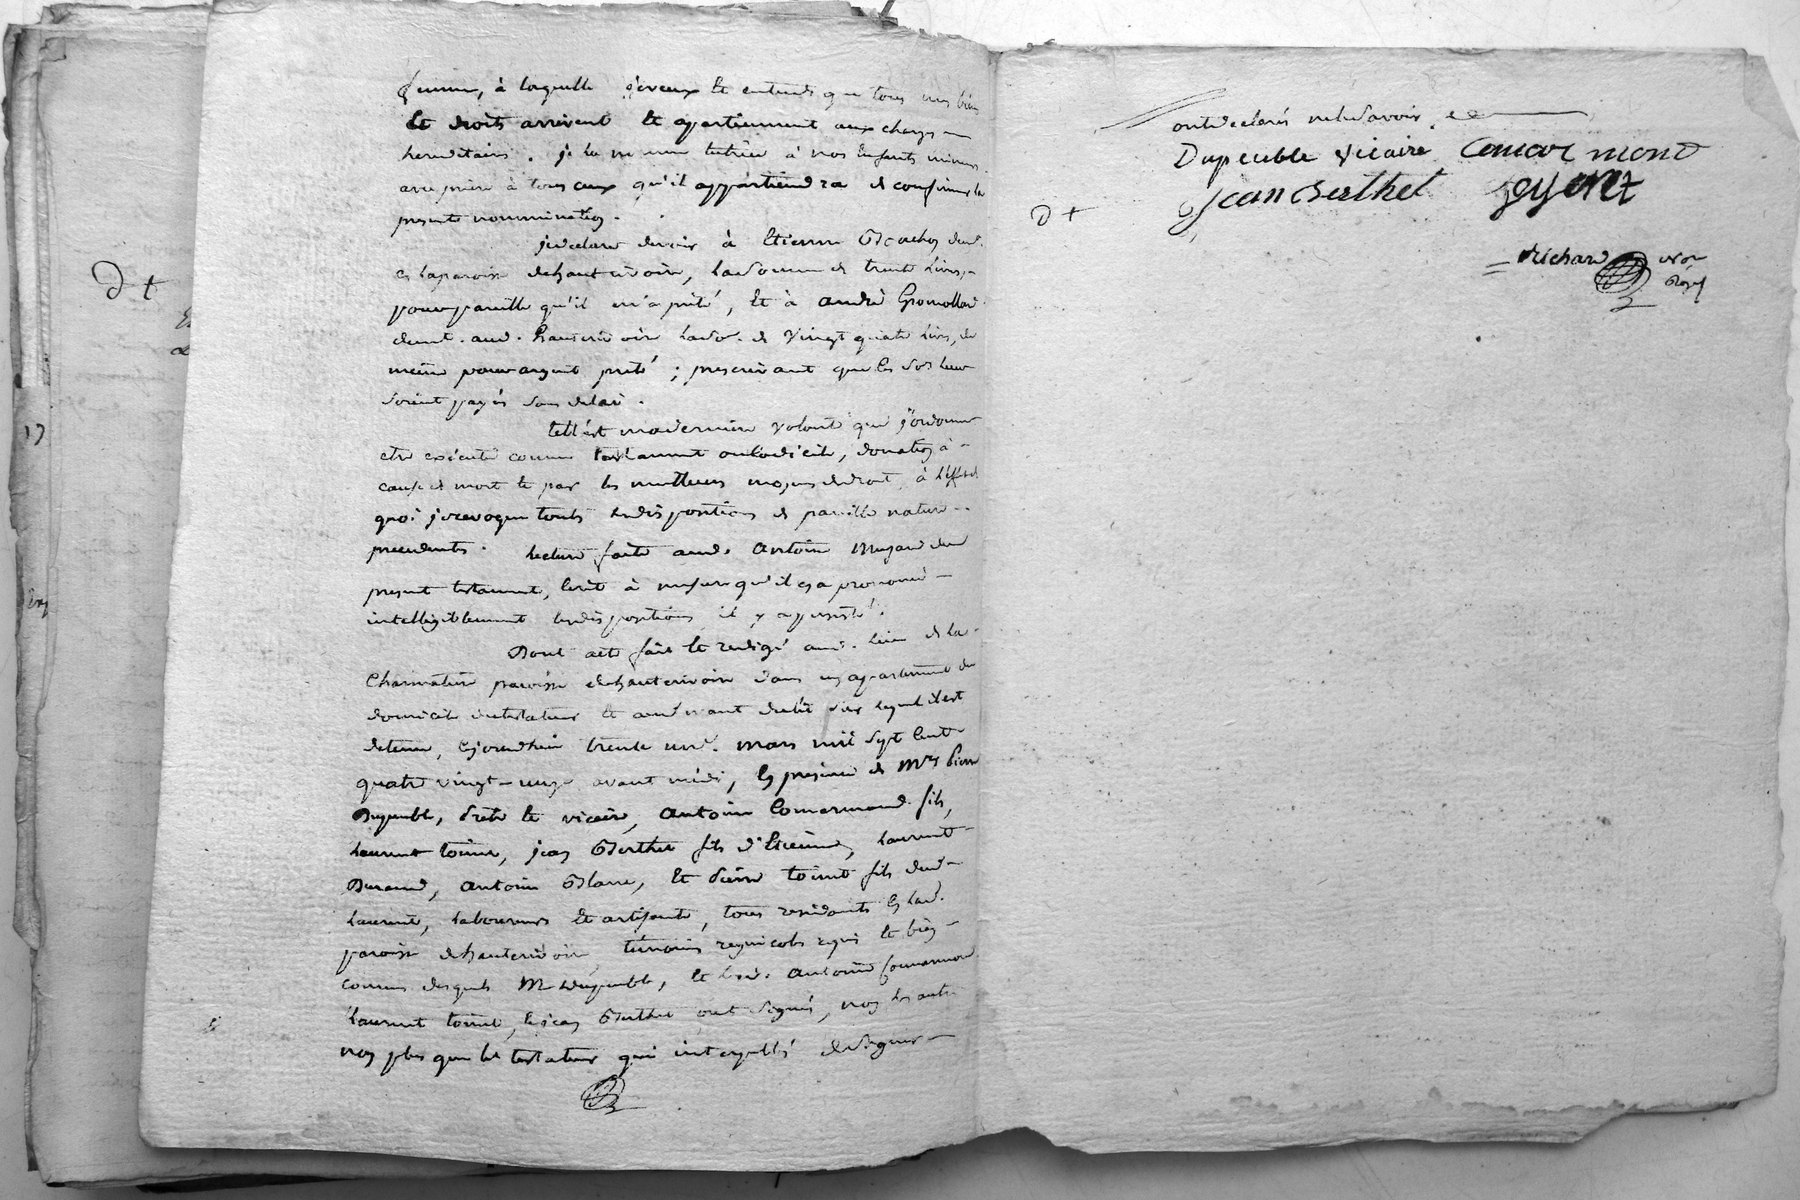 femme, à laquelle je veux et entends que tous mes biens
et droits arrivent et apartiennent aux charges
hereditaires. je la nomme tutrice à nos enfants mineurs
avec priere à tous ceux qu'il appartiendra de confirmer la
presente nommination.
je declare devoir à Etienne dud.
en la paroisse de hauterivoire, la somme de trente livres,
pour pareille qu'il m'a prêté, et à andré Gromollard
demt. aud. hauterivoire la so. de vingt quatre livres, de
même pour argent prêté ; prescrivant que les sommes leur
soient payés sans delai.
tell'est ma derniere volonté que j'ordonne
etre exécutée comme testament ou codicile, donation à
cause de mort et par les meilleurs moyens de droit, à l'effet de
quoi je revoque touts les dispositions de pareille nature
precedentes. Lecture faite aud. antoine du
present testament, ecrit à mesure qu'il en a prononcé
intelligiblement les dispositions, il y a persisté.
Dont acte fait et redigé aud. lieu de la
Charmatiere paroisse de hauterivoire dans un apartement du
domicile du testateur et au devant du lit sur lequel il est
detenu, cejourdhui trente un. mars mil sept cent
quatre vingt-onze avant midi, en presence de Mre Pierre
Dupeuble, prêtre et vicaire, antoine Comarmond fils,
Laurent toinet, jean Berthet fils d'Etienne, Laurent
Durand, antoine Blanc, et pierre toinet fils dud.
Laurent, laboureurs et artisants, tous residants en lad.
paroisse de hauterivoire, temoins requis et bien
connus desquels Mre dupeuble, et led. antoine Comarmond
Laurent toinet, et jean Berthet ont signés, non les autres
non plus que le testateur qui interpellés de signer
ont declarés ne le savoir.
Dupeuble vicaire Comar mond
D +
D + Jean Berthet
Richard nore
Royal
17